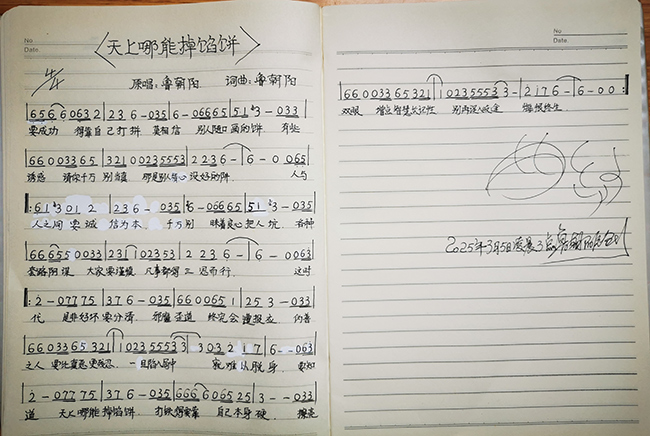 No
Date
《天上哪能掉馅饼》
4/4
原唱：鲁朝阳 词曲：鲁朝阳
656 60632 | 236 -035 | 6-06665 | 51 3-033
要成功 得靠自己打拼 莫相信 别人随口画的饼 有些
6600 3365 | 321 0235553 | 2236- | 6-0 065
诱惑 请你千万别当真 那是别人 心没好的阱 人与
61 301 2 | 236-035 | 6-06665 | 51 3-035
人之间要诚信为本 千万别 昧着良心把人坑 各种
66655 0033 | 321 0235553 | 2236- | 6-0063
套路阴谋 大家要谨慎 凡事都得三思而行 这时
2-07775 | 376-035 | 6600651 | 253-033
代 是非好坏要分清 邪魔歪道 终究会遭报应 伪善
6603365321 | 1023555 3 | 3-303217 | 6--063
之人 要比真恶更残忍 一旦陷入局中 就难以脱身 要知
2-07775 | 376-035 | 66660251 | 3--033
道 天上哪能掉馅饼 打铁得需靠 自己本身硬 擦亮
No
Date
6600 3365321 | 10235553 3- | 2176- | 6-0-0
双眼 增点智慧长记性 别再误入歧途 悔恨终生
2025年3月5日凌晨3点